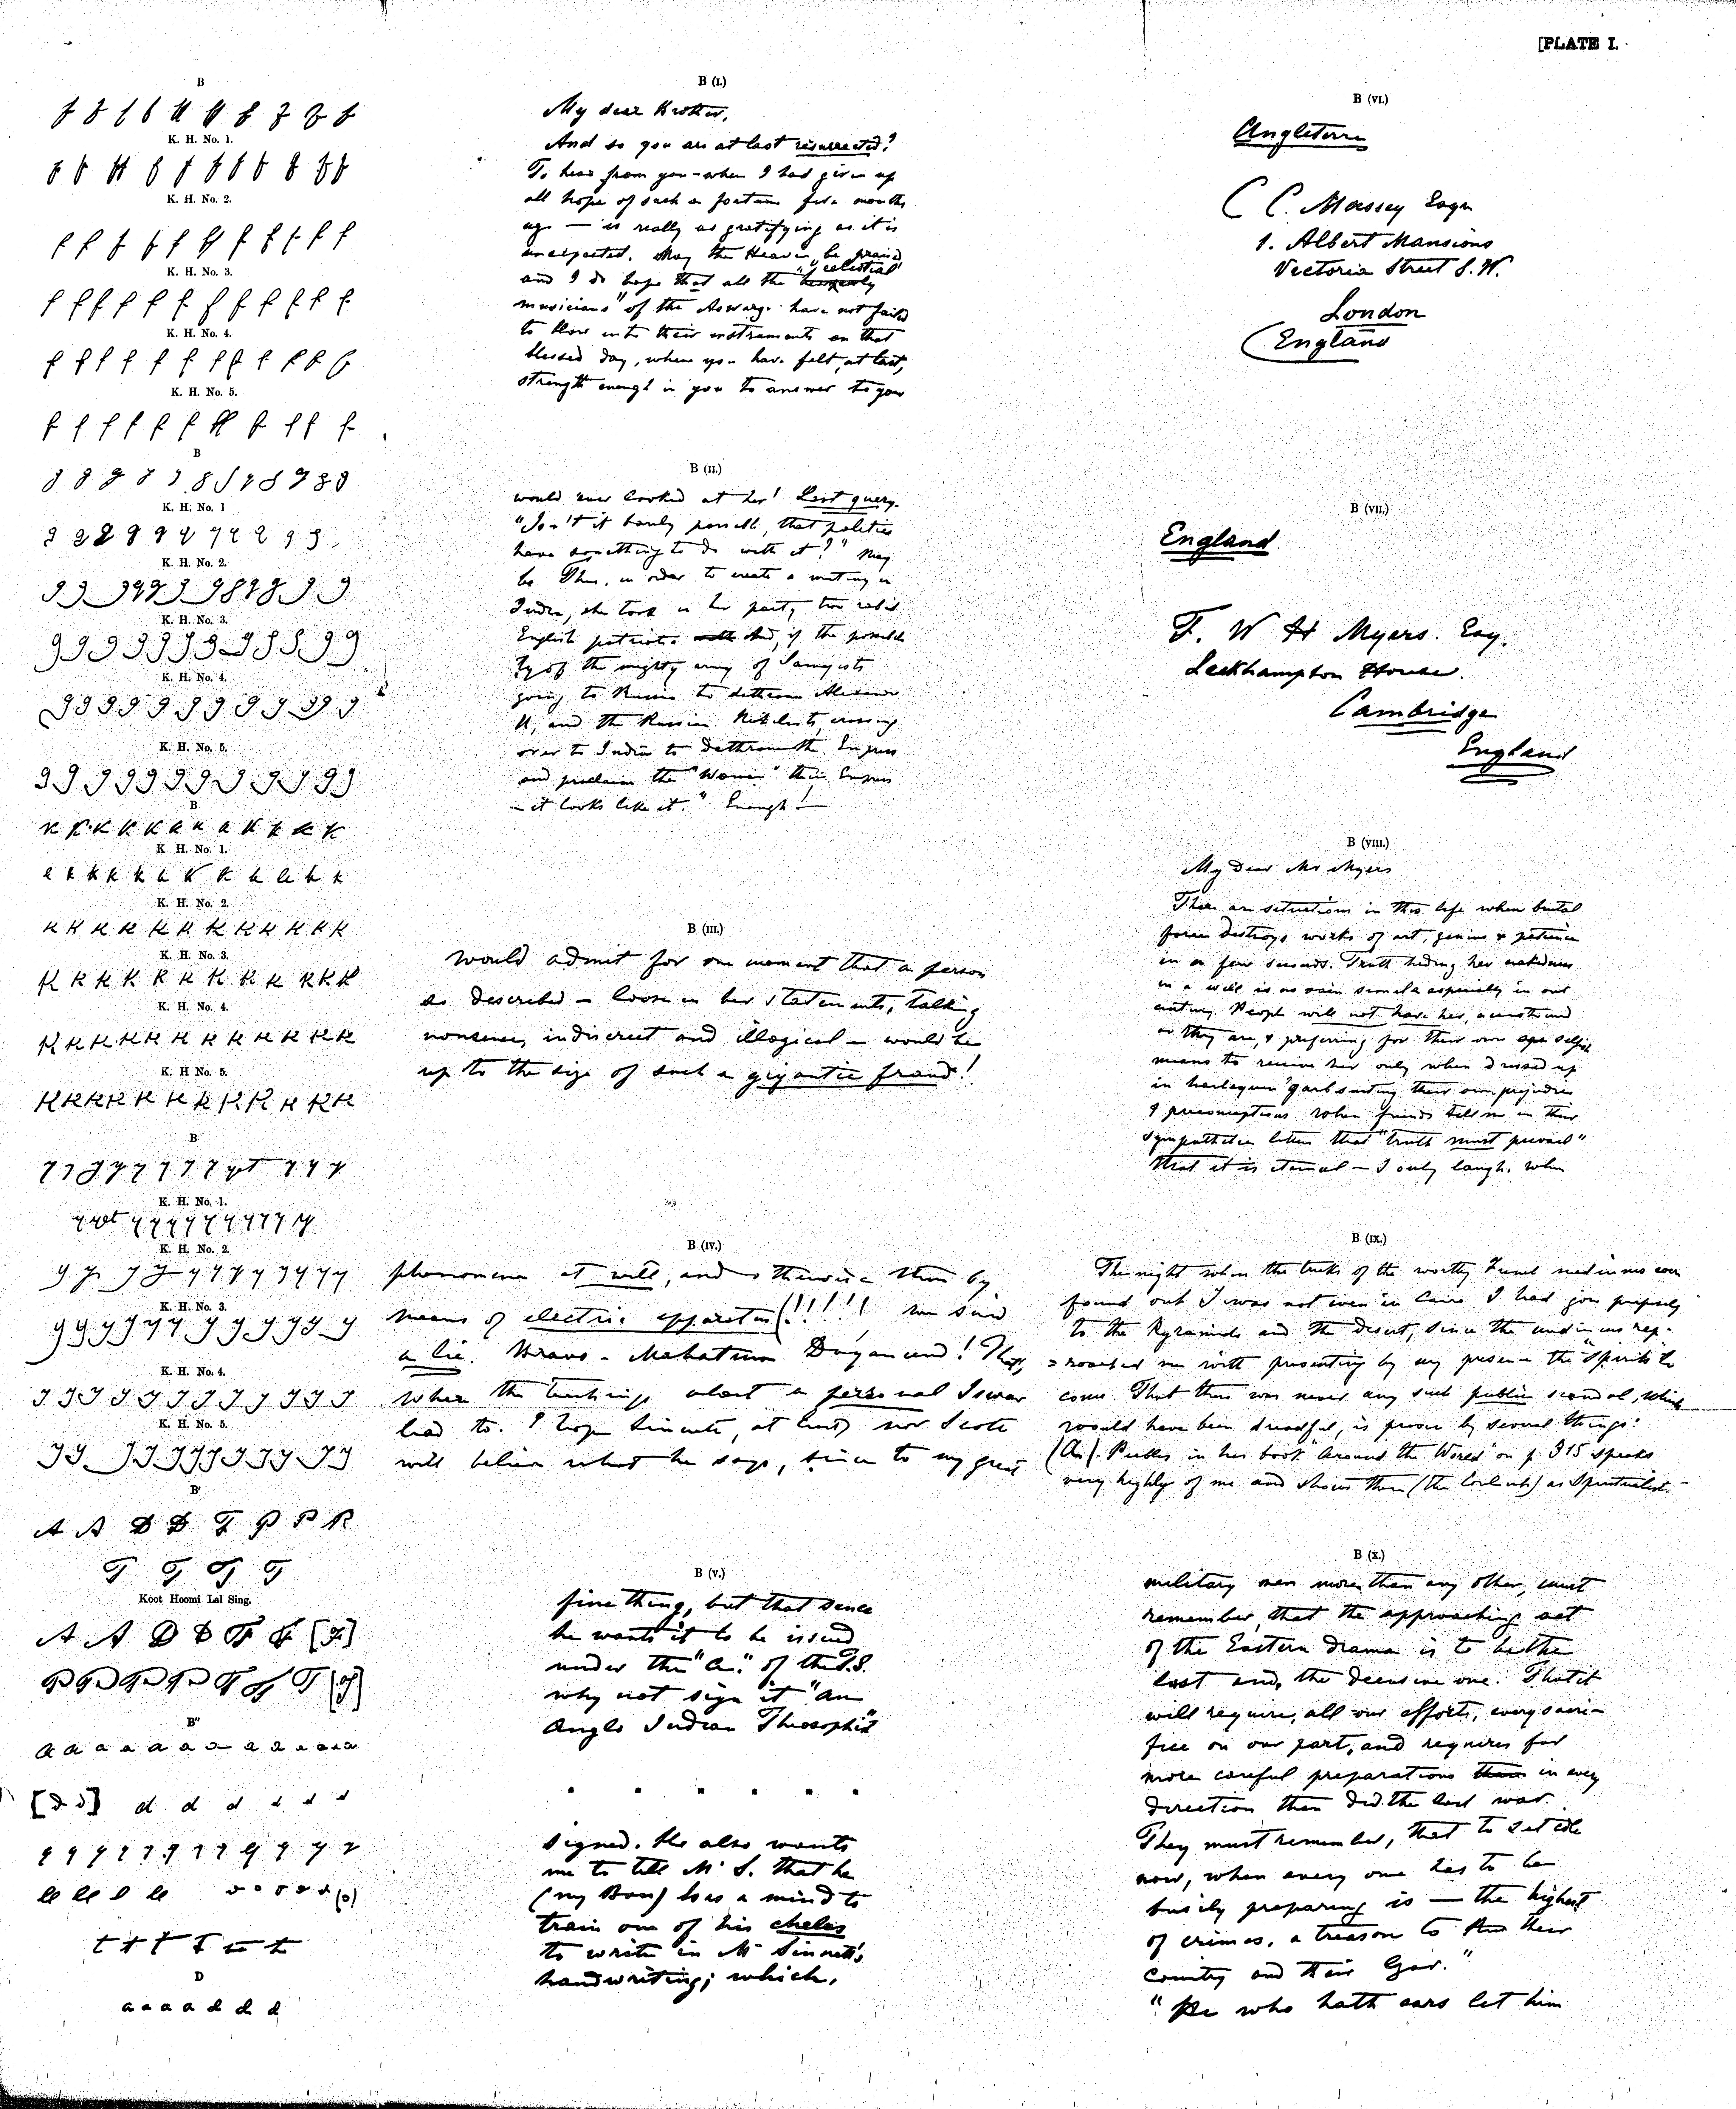 [PLATE I.
B
K. H. No. 1.
K. H. No. 2.
K. H. No. 3.
K. H. No. 4.
K. H. No. 5.
B
K. H. No. 1
K. H. No. 2.
K. H. No. 3.
K. H. No. 4.
K. H. No. 5.
B
K H. No. 1.
K. H. No. 2.
K. H. No. 3.
K. H. No. 4.
K. H No 5.
B
K. H. No, 1.
K. H. No. 2.
K. H. No. 3.
K. H. No. 4.
K. H. No. 5.
B'
A A D D T P P R
T T T T
Koot Hoomi Lal Sing.
B"
a a a a a a a a a a a a
D
a a a a d d d
B (I.)
My dear Brother,
And so you are at last resurrected?
To hear from you – when I had given up
all hope of such a fortune few months
ago — is really as gratifying as it is
unexpected. May the Heaven be praised
"celestial
and I do hope that all the heavenly
musicians" of the have not failed
to blow into their instruments on that
blessed day, when you have felt, at last,
strength enough in you to answer to your
B (II.)
would ever looked at her! Last query.
"Isn't it barely possible, that politics
have something to do with it?" May
be Thus, in order to create a mutiny in
India, she took in her party two rabid
English patriots And, if the possibili
ty of the mighty army of
going to Russia to dethrone Alexander
II, and the Russian Nihilists crossing
over to India to dethrone the Empress
and proclaim the "Woman" their Empress
– it looks like it." Enough!—
B (III.)
would admit for one moment that a person
as described – loose in her statements, talking
nonsense, indiscreet and illogical – would be
up to the size of such a gigantic fraud!
B (IV.)
phenomena at will, and otherwise than by
means of electric apparatus (!!!!!! was said
a lie. Bravo – Mahatma Dayanand!
where the teachings about a personal Iswar
lead to. I hope Sinnett, at least nor Scott
will believe what he says, since to my great
B (V.)
fine thing, but that since
he wants it to be issued
under the "a." of the T.S.
why not sign it "an
Anglo Indian Theosophist"
signed. He also wants
me to tell Mr S. that he
(my Boss) has a mind to
train one of his chelas
to write in Mr Sinnett's
handwriting; which,
B (VI.)
Angleterre
C C. Massey Esqre
1. Albert Mansions
Victoria Street S.W.
London
England
B (VII.)
England
F. W H Myers. Esq.
Leckhampton House.
Cambridge
England
B (VIII.)
My Dear Mr Myers
There are situations in this life when brutal
force destroys works of art, genius & patience
in a few seconds. Truth hiding her nakedness
in a well is no vain simile especially in our
century. People will not have her,
as they are, & preferring for their own selfish
means to receive her only when dressed up
in harlequin garb suiting their own prejudices
& preconceptions When friends tell me in their
sympathetic letters that "truth must prevail"
that it is eternal – I only laugh. When
B (IX.)
The night when the tricks of the worthy French mediums were
found out I was not even in Cairo I had gone purposely
to the Pyramids and the desert, since the mediums rep-
=roached me with preventing by my presence the "Spirits" to
come. That there was never any such public scandal, which
would have been dreadful, is proven by several things:
(a). Peebles in his book "Around the World" on p 315 speaks
very highly of me and shows them (the ) as Spiritualist. –
B (X.)
military men more than any other, must
remember, that the approaching act
of the Eastern drama is to be the
last and, the decisive one. That it
will require, all our efforts, every sacri–
fice on our part, and requires far
more careful preparations than in every
direction than did the last war.
They must remember, that to sit idle
now, when every one has to be
busily preparing is — the highest
of crimes, a treason to their
Country and their Gov."
"He who hath ears let him